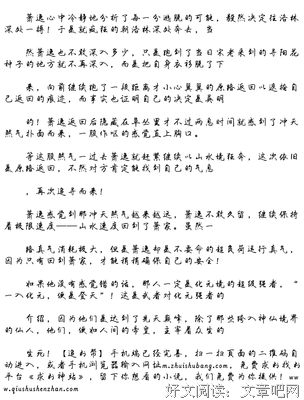 萧逸心中冷静地分析了每一分逃脱的可能，毅然决定往洛林
深处一搏！于是就疯狂的朝洛林深处奔去，当
然萧逸也不敢深入多少，只是跑到了当日宋老来到的寻阳花
种子的地方就不再深入，而是把自身衣衫脱了下
来，向前继续跑了一段距离才小心翼翼的原路返回以遮掩自
己返回的痕迹，而事实也证明自己的决定是英明
的！萧逸返回后隐藏在草丛里才不过两息时间就感到了冲天
煞气扑面而来，一股作呕的感觉直上胸口。
等这股煞气一过去萧逸就赶紧继续以山水境狂奔，这次依旧
是原路返回，不然对方肯定能找到自己的气息
，再次追寻而来！
萧逸感觉到那冲天煞气越来越近，萧逸不敢久留，继续保持
着极限速度——山水速度回到了萧家。虽然一
路真气消耗极大，但是萧逸却是不要命的超负荷运行真气，
因为只有回到萧家，才能稍稍确保自己的安全！
如果他没有感觉错的话，那人一定是化元境的超级强者，“
一入化元，便是登天”！这是武者对化元强者的
介绍，因为他们是达到了先天巅峰，除了那些跨入神仙境界
的仙人，他们，便如人间的帝皇，主宰着众生的
生死！【追书帮】手机端已经完善，扫一扫页面的二维码自
动进入，或者手机浏览器输入网址m.zhuishubang.com，免费求书找书
平台《求书神站》，留下你想看的小说，我们免费为你提供！www
.qiushushenzhan.com
好文阅读：文章吧网